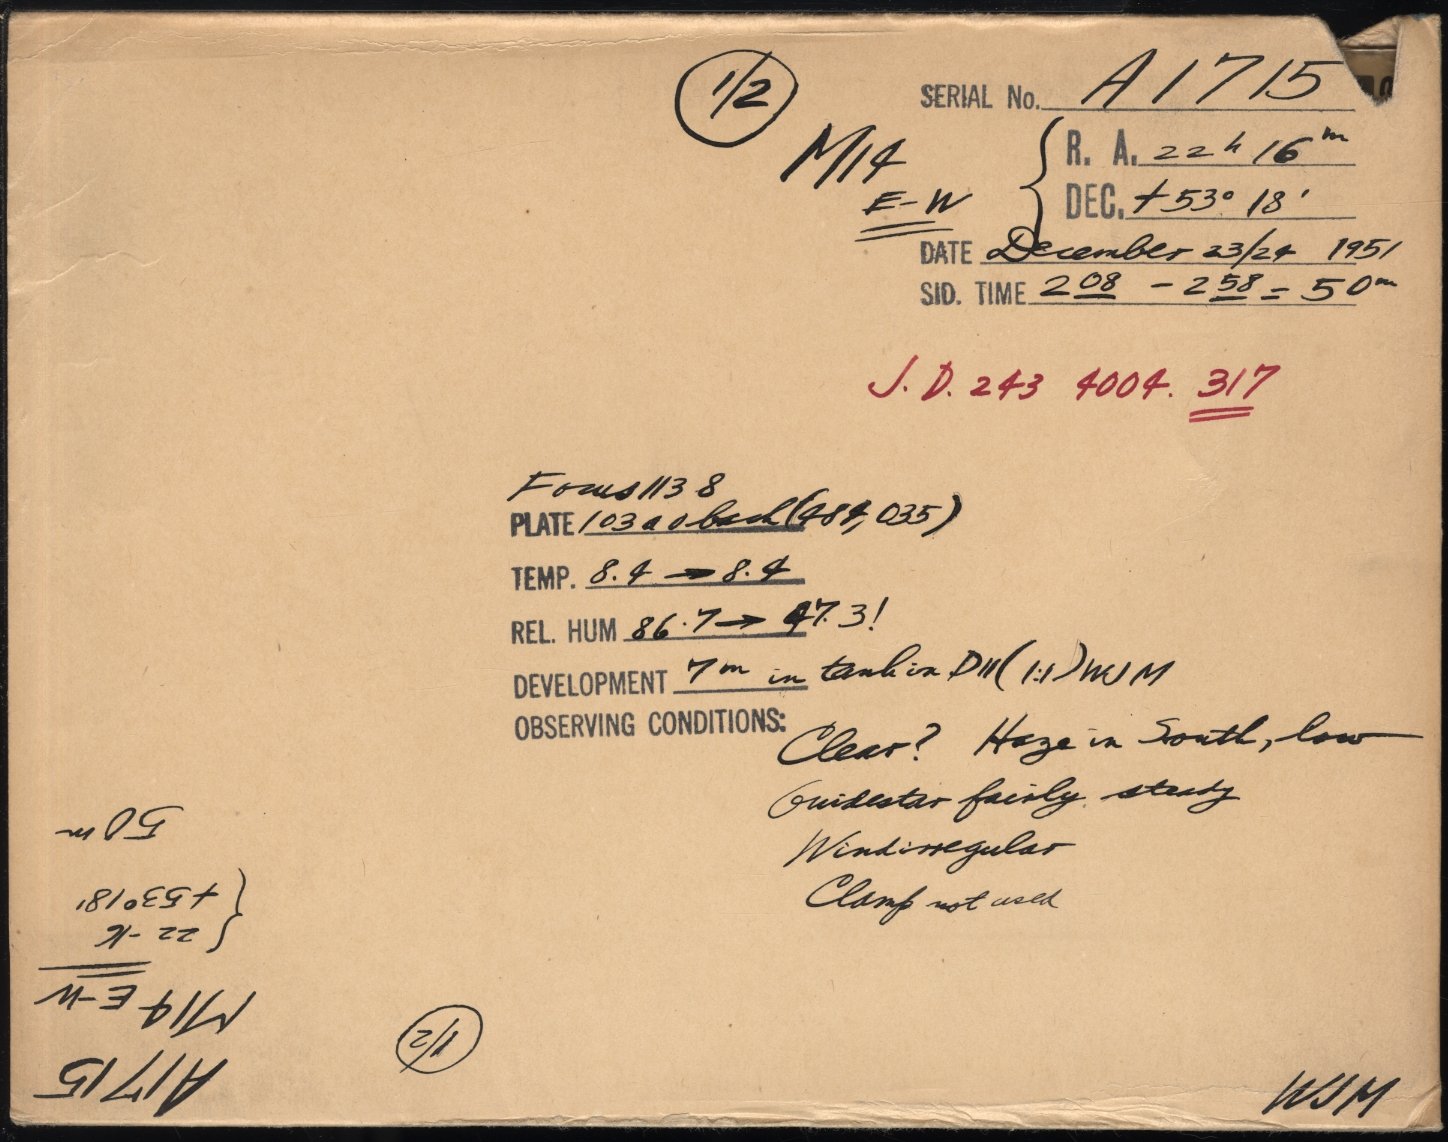 1/2
SERIAL No. A1715
M14
E-W
R. A. 22h 16m
DEC. +53° 18'
DATE December 23/24 1951
SID. TIME 2 08 - 2 58 = 50m
J. D. 243 4004. 317
Focus 1138
PLATE 103 a O back (484,035)
TEMP. 8.4 → 8.4
REL. HUM 86.7 → 47.3!
DEVELOPMENT 7m in tank in D11 (1:1) WJM
OBSERVING CONDITIONS:
Clear? Haze in South, low
Guidestar fairly steady
Wind irregular
Clamp not used
A1715
M14 E-W
22-16
+53° 18'
50m
1/2
WJM